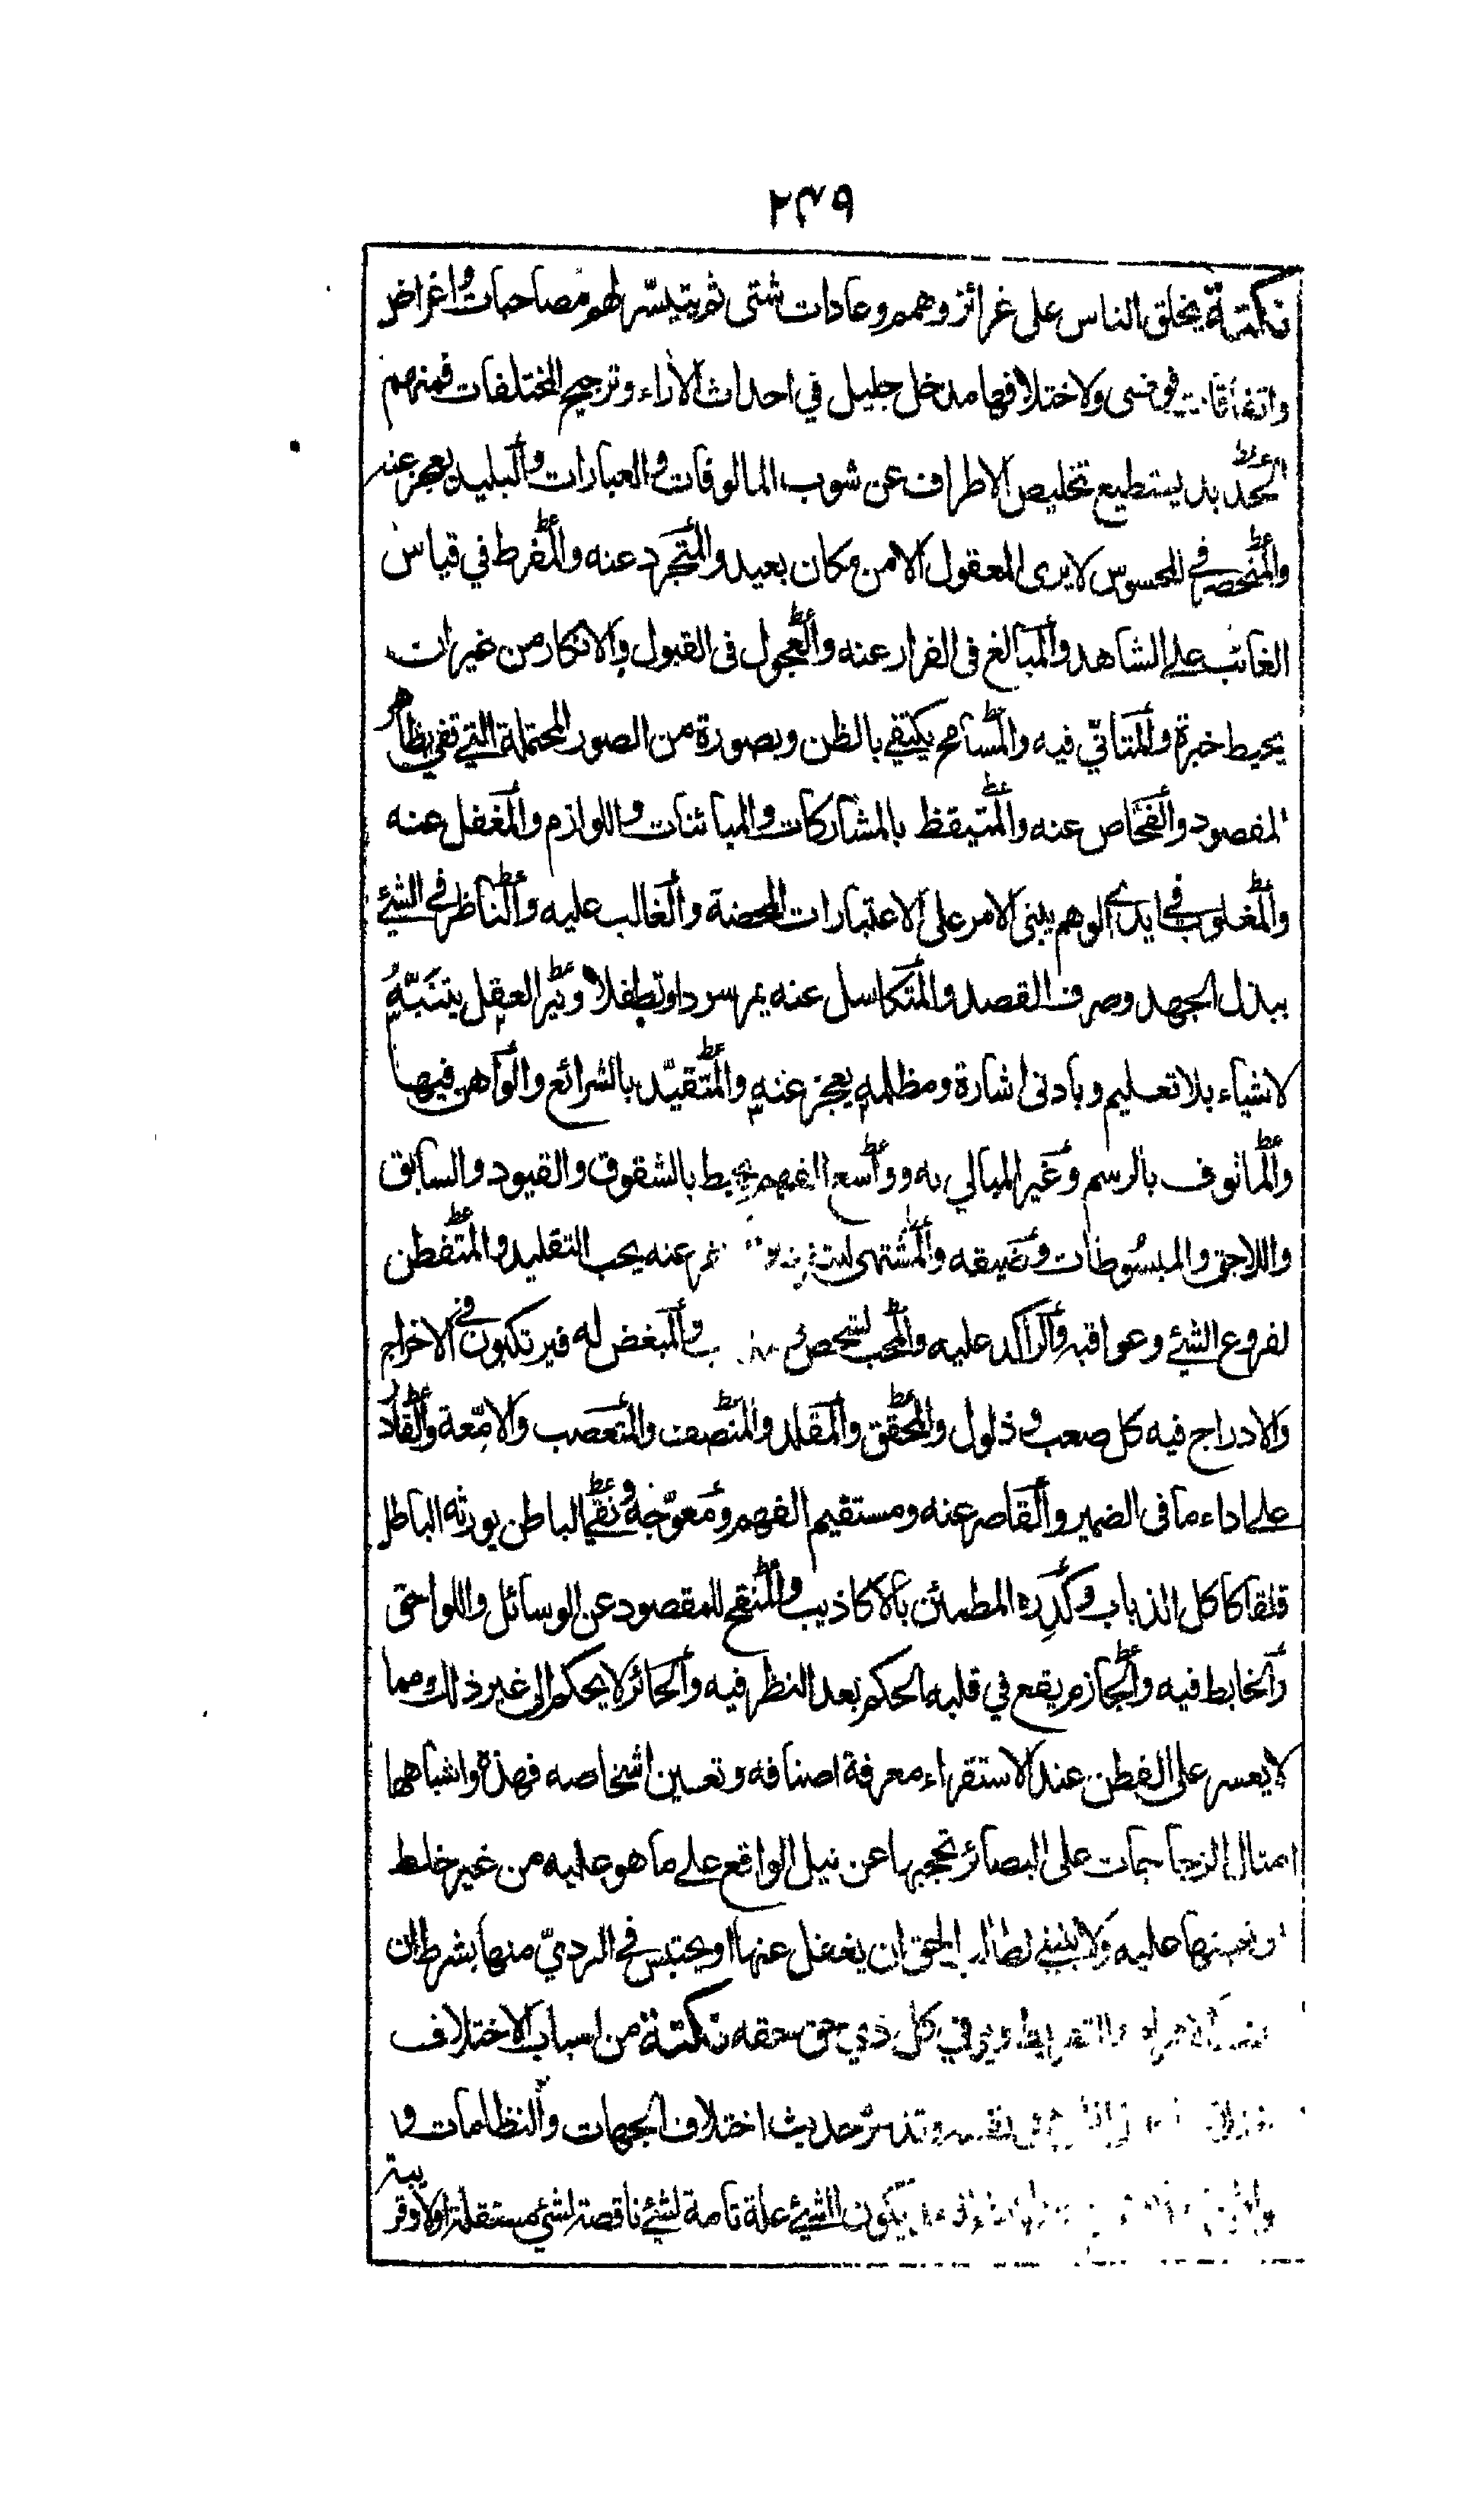 ۲۴۹
نكتة يخلق الناس على غرائز وهمم وعادات شتى ثم يتيسر لهم مصاحبات واغراض
واتفاقات فوضى ولاختلافها مدخل جليل في احداث الآراء وترجيح المختلفات فمنهم
الحديد يستطيع تخليص الاطراف عن شوب المالوفات والعبارات والبليد يعجز عنه
والمنحصر في المحسوس لا يرى المعقول الا من مكان بعيد والمتجرد عنه والمفرط في قياس
الغائب على الشاهد والمبالغ فى الفرار عنه والعجول فى القبول والانكار من غير ان
يحيط خبرة والمتاني فيه والمسامح يكتفي بالظن وبصورة من الصور المحتملة التي تفي بظاهر
المقصود والفحاص عنه والمتيقظ بالمشاركات والمبائنات واللوازم والمغفل عنه
والمغلوب في ايدي الوهم يبنى الامر على الاعتبارات المحضة والغالب عليه والناظر في الشئ
ببذل الجهد وصرف القصد والمتكاسل عنه يمر سردا وتطفلا ونير العقل يتنبه
لاشياء بلا تعليم وبادنى اشارة ومظلمه يعجز عنه والمتقيد بالشرائع والواهن فيها
والمانوف بالرسم وغير المبالي به وواسع الفهم يحيط بالشقوق والقيود والسابق
واللاحق والمبسوطات وضيقه والمشتهى عنه يحب التقليد والمتفطن
لفروع الشئ وعواقبه والراكد عليه والمحب لشخص والمبغض له فيرتكبون في الاخراج
والادراج فيه كل صعب وذلول والمحقق والمقلد والمنصف والمتعصب والامعة والقادر
على اداء ما فى الضمير والقاصر عنه ومستقيم الفهم ومعوجه ونقي الباطن يورثه الباطل
قلقا كاكل الذباب وكدره المطمئن بالاكاذيب والمنقح للمقصود عن الوسائل واللواحق
والخابط فيه والجازم يقع في قلبه الحكم بعد النظر فيه والحائر لا يحكم الى غير ذلك ومما
لا يعسر على الفطن عند الاستقراء معرفة اصنافه وتعيين اشخاصه فهذه واشباهها
امثال الزجاجات على البصائر تحجبها عن نيل الواقع على ما هو عليه من غير خلط
عليه ولا ينبغي لطالب الحق ان يغفل عنها او يحتبس في الردي منها بشرط ان
ويوفي كل ذي حق حقه نكتة من اسباب الاختلاف
وتذكر حديث اختلاف الجهات والنظامات و
يكون الشئ علة تامة لشئ ناقصة لشئ مستقلة اولا وقريبة